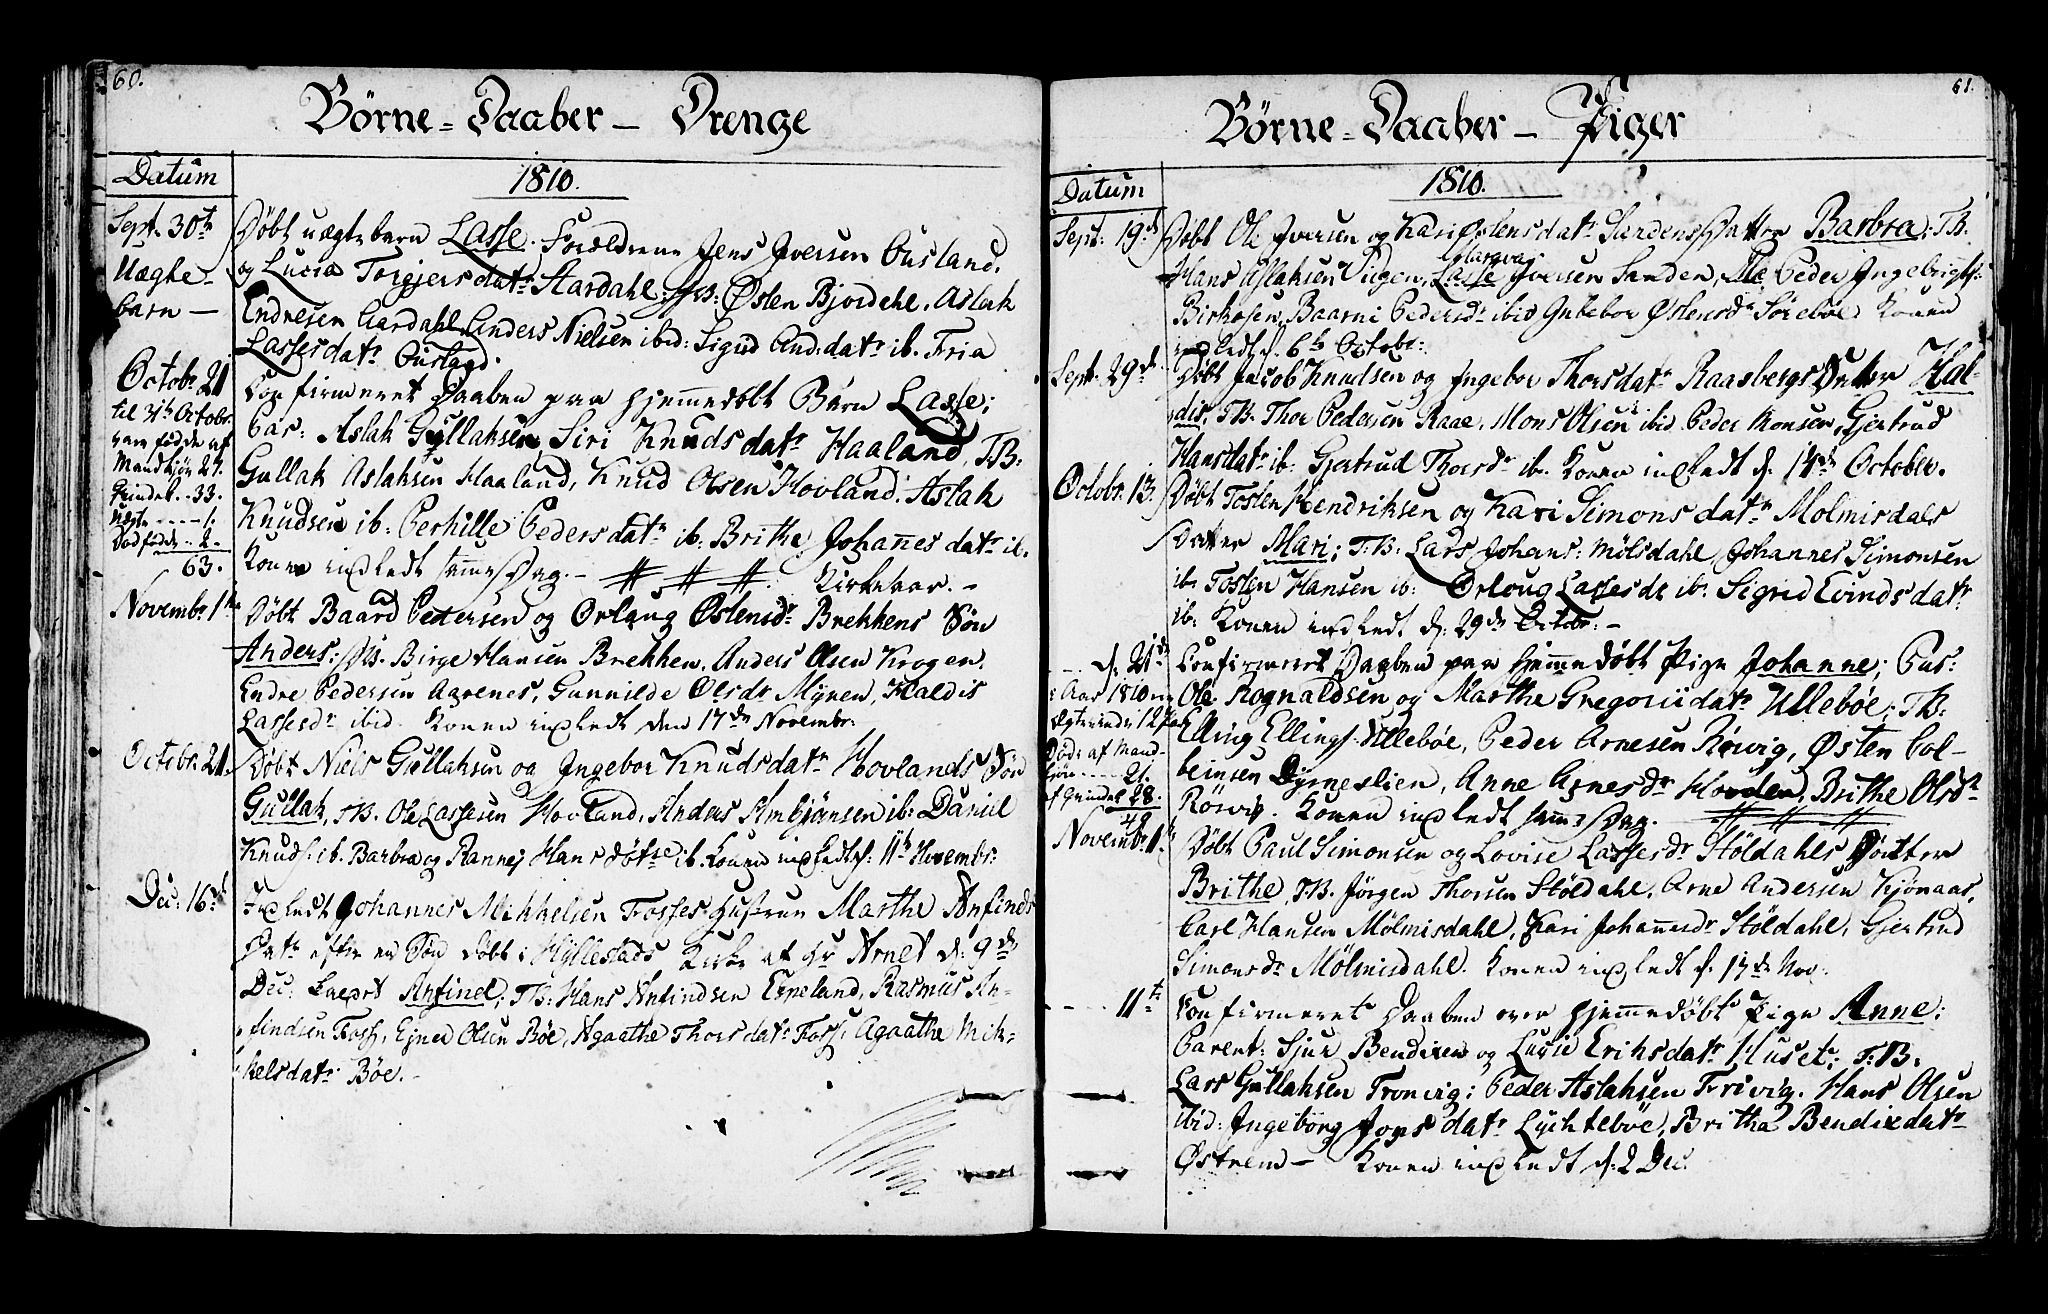 60.
Börne-Daaber — Drenge
Datum
1810.
Sept. 30te
Uægte-
barn —
Döbt uægtebarn Lasse. Forældrene Jens Iversen Ousland,
og Lucia Torgjersdatr Aardahl; TB: Østen Bjordahl, Aslak
Endresen Aardahl, Anders Nielsen ibid: Sigrid And:datr ib. Fria
Lassesdatr Ousland.
Octobr 21
til 31th Octobr
ere födde af
Mandkjön 27.
Qvindek. 33.
Uægte ---- 1.
Dödfödde .. 2.
63.
Confirmeret Daaben paa hjemmedöbt Barn Lasse;
Par: Aslak Gullaksen, Siri Knudsdatr Haaland, TB:
Gullak Aslaksen Haaland, Knud Olsen Hovland, Aslak
Knudsen ib: Perhille Pedersdatr ib. Brithe Johannesdatr ib.
Konen indledt samme Dag. — # # # Kirkeaar. —
Novembr 1te
Döbt Baard Pettersen og Orlaug Østensdr Brekkens Sön
Anders; TB. Birge Hansen Brekken, Anders Olsen Krogen,
Endre Pedersen Aarenes, Gunnilde Olsdr Myren, Haldis
Lassesdr ibid. Konen indledt den 17de Novembr.
Octobr 21.
Döbt Niels Gullaksen og Ingebor Knudsdatr Hovlands Sön
Gullak, TB. Ole Lassesen Hovland, Anders Ambjönsen ib: Daniel
Knuds. ib. Barbra og Rannej Hansdötre ib. Konen indledt d. 11te Novembr.
Dec: 16de
Indledt Johannes Mikkelsen Fosses Hustrue Marthe Anfinds
Datr efter en Sön döbt i Hyllestads Kirke af Hr Arnet d. 9de
Dec: kaldet Anfind; TB: Hans Anfindsen Espeland, Rasmus An-
findsen Foss, Ejner Olsen Böe, Agaathe Thorsdatr Foss, Agaathe Mik-
kelsdatr Böe. —
61.
Börne-Daaber — Piger
Datum
1810.
Sept: 19de
Döbt Ole Iversen og Kari Østensdatr Sandens Datter Barbra; TB.
Hans Aslaksen Lasse Iversen Sanden, Peder Ingebrigts:
Birkosen, Baarni Pedersdr ibid Gutebor Østensdr Söreböe Konen
indledt d. 6te Octobr:
Sept. 29de
Döbt Jacob Knudsen og Ingebor Thorsdatr Raasbergs Datter Hal-
dis, TB. Thor Pedersen Raae, Mons Olsen ibid Peder Monsen, Gjertrud
Hansdatr ib. Gjertrud Thorsdr ib. Konen indledt d. 14de October.
Octobr 13.
Döbt Tosten Hendriksen og Kari Simonsdatr Molmisdals
Datter Mari; T.B. Lars Johans: Mölsdahl, Johannes Simonsen
ib. Tosten Hansen ib: Orloug Lassesdr ib. Sigrid Evindsdatr
ib. Konen indledt d: 29de Octobr. —
--- d. 21de
Aar 1810
Döde af Mand-
kjön ---- 21.
af Qvindek 28.
Confirmeret Daaben paa hjemmedöbt Pige Johanne; Par:
Ole Rognaldsen og Marthe Gregoriidatr Ulleböe; TB:
Elling Ellings. Ulleböe, Peder Arnesen Rörvig, Østen Col-
beinsen Dyrneslien, Anne Arnesdr Hovden, Brithe Olsdr
Rörvig. Konen indledt samme Dag. # # #
Novembr 1te
Döbt Paul Simonsen og Lovise Lassesdr Stöldahls Datter
Brithe, T.B. Jörgen Thorsen Stöldahl, Arne Andersen Kjönaas,
Carl Hansen Mölmisdahl, Kari Johannesdr Stöldahl, Gjertrud
Simonsdr Mölmisdahl. Konen indledt d. 17de Nov:
---- 11te
Confirmeret Daaben over hjemmedöbt Pige Anne;
Parent: Sjur Bendixen og Lucie Eriksdatr Huset; T.B.
Lars Gullaksen Tronvig; Peder Aslaksen Trivig. Hans Olsen
ibid: Ingeborg Jonsdatr Lychteböe, Britha Bendixdatr
Østrem — Konen indledt d. 2 Dec.